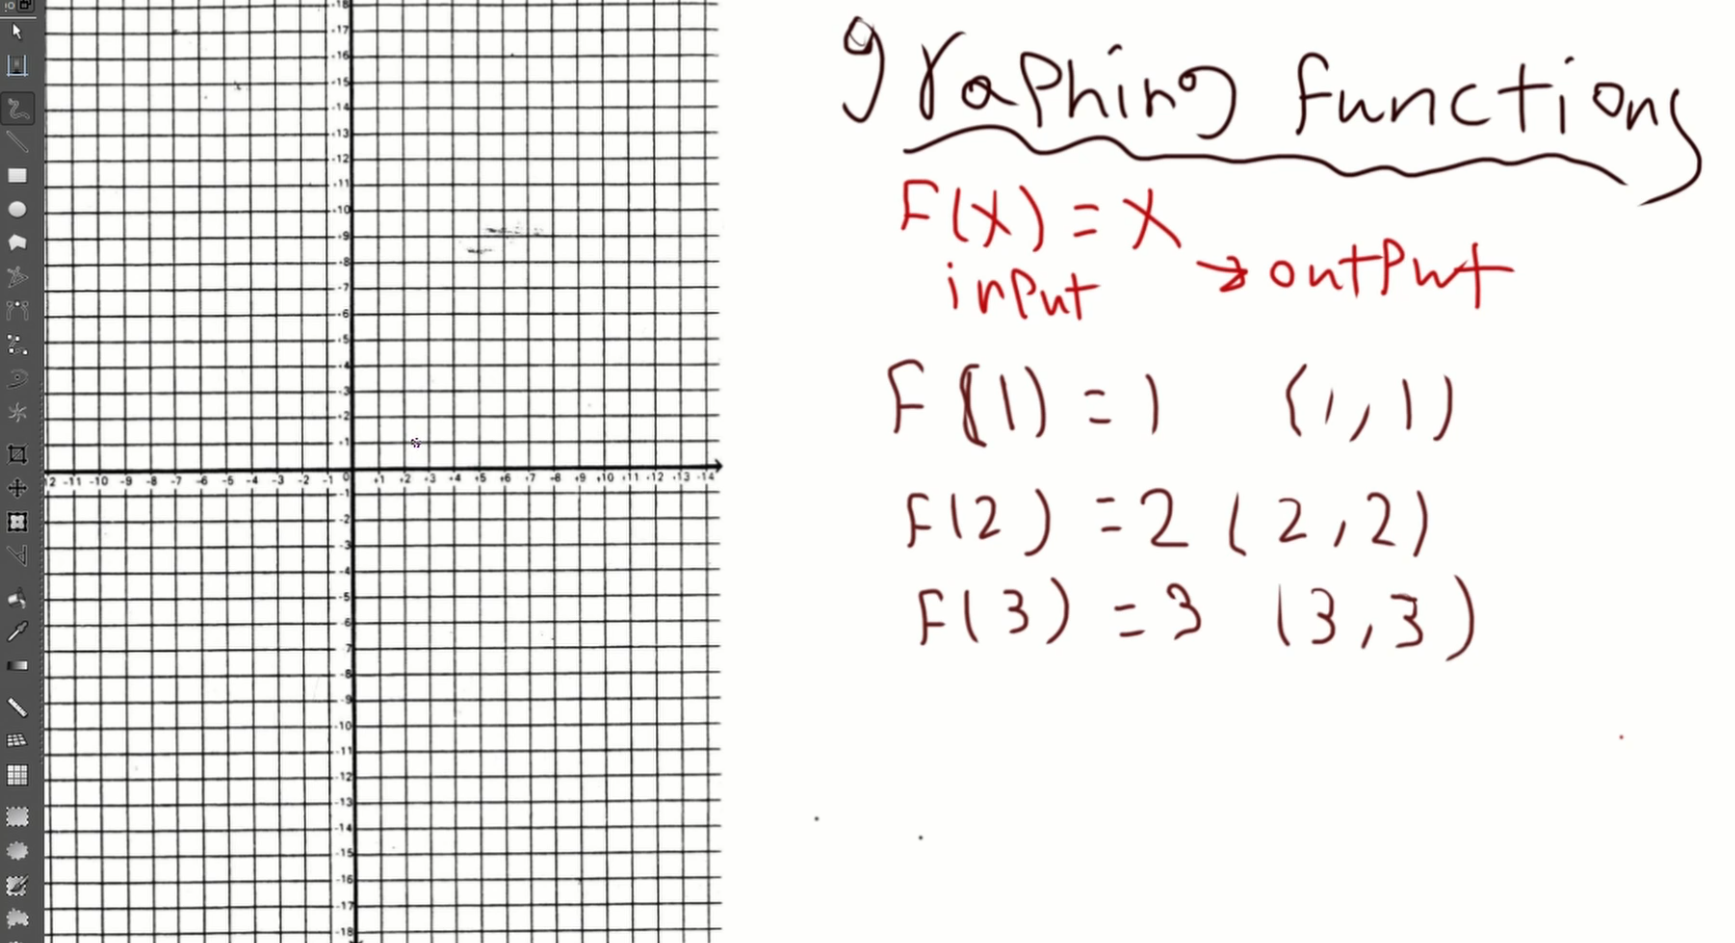 graphing functions
F(x) = x
input → output
F(1) = 1 (1,1)
F(2) = 2 (2,2)
F(3) = 3 (3,3)
-18
+17
+16
+15
+14
+13
+12
+11
+10
+9
+8
+7
+6
+5
+4
+3
+2
+1
12 -11 -10 -9 -8 -7 -6 -5 -4 -3 -2 -1 0 +1 +2 +3 +4 +5 +6 +7 +8 +9 +10 +11 +12 +13 -14
-1
-2
-3
-4
-5
-6
-7
-8
-9
-10
-11
-12
-13
-14
-15
-16
-17
-18